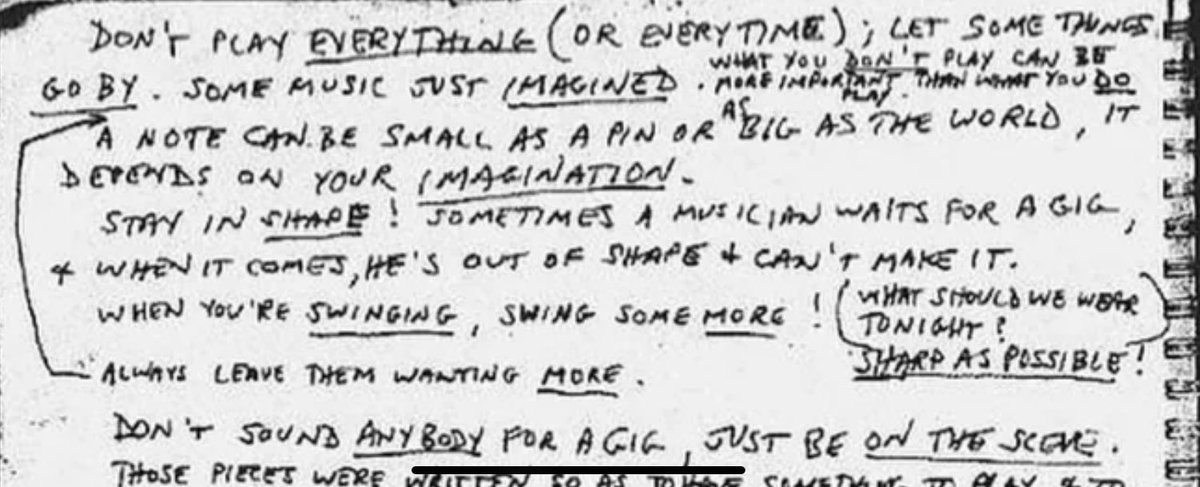 DON'T PLAY EVERYTHING (OR EVERYTIME); LET SOME THINGS
GO BY. SOME MUSIC JUST IMAGINED.
WHAT YOU DON'T PLAY CAN BE
MORE IMPORTANT THAN WHAT YOU DO
PLAY.
A NOTE CAN BE SMALL AS A PIN OR AS BIG AS THE WORLD, IT
DEPENDS ON YOUR IMAGINATION.
STAY IN SHAPE! SOMETIMES A MUSICIAN WAITS FOR A GIG,
& WHEN IT COMES, HE'S OUT OF SHAPE & CAN'T MAKE IT.
WHEN YOU'RE SWINGING, SWING SOME MORE!
(WHAT SHOULD WE WEAR
TONIGHT?)
SHARP AS POSSIBLE!
ALWAYS LEAVE THEM WANTING MORE.
DON'T SOUND ANYBODY FOR A GIG, JUST BE ON THE SCENE.
THOSE PIECES WERE WRITTEN SO AS TO HAVE SOMETHING TO PLAY & TO